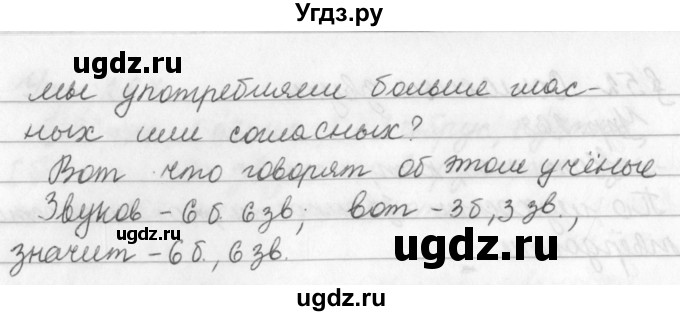 Угдз.ру
ugdz.ru
мы употребляем больше глас-
ных или согласных?
Вот что говорят об этом учёные
Звуков - 6 б. 6 зв; вот - 3 б, 3 зв.,
ugdz.ru
ugdz.ru
значит - 6 б., 6 зв.
ugdz.ru